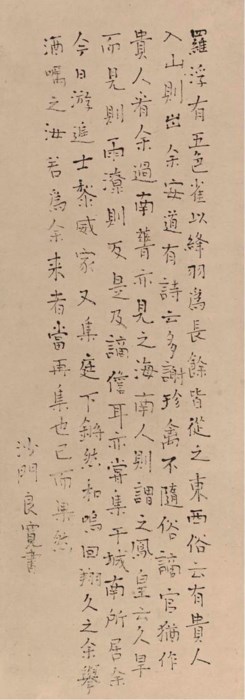 羅浮有五色雀以絳羽爲長餘皆從之東西俗云有貴人
入山則出余安道有詩云多謝珍禽不隨俗謫官猶作
貴人看余過南華亦見之海南人則謂之鳳皇云久旱
而見則雨潦則反是及謫儋耳亦嘗集于城南所居余
今日游進士黎威家又集庭下鏘然和鳴回翔久之余舉
酒囑之汝若爲余来者當再集也已而果然
沙門良寛書